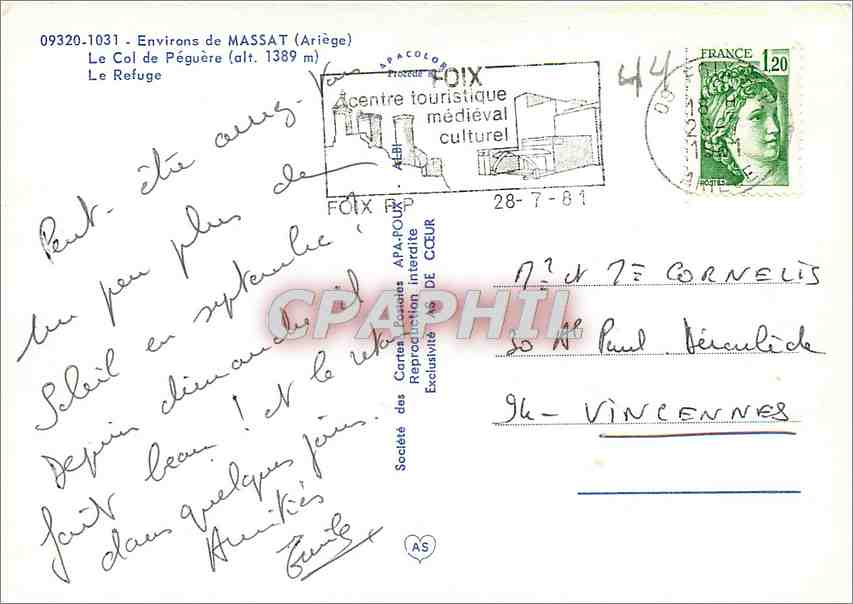 09320-1031 - Environs de MASSAT (Ariège)
Le Col de Péguère (alt. 1389 m)
Le Refuge
APACOLOR
Procédé
FOIX
centre touristique
médiéval
culturel
FOIX R.P
28-7-81
44
FRANCE
1,20
POSTES
Peut-être aurez-vous
un peu plus de
Soleil en septembre !
Depuis dimanche il
fait beau ! et le retour
dans quelques jours.
Amitiés
Société des Cartes Postales APA-POUX - ALBI
Reproduction interdite
Exclusivité AS DE CŒUR
AS
CPAPHIL
Mr et Mme CORNELIS
30 Av Paul Déroulède
94 - VINCENNES